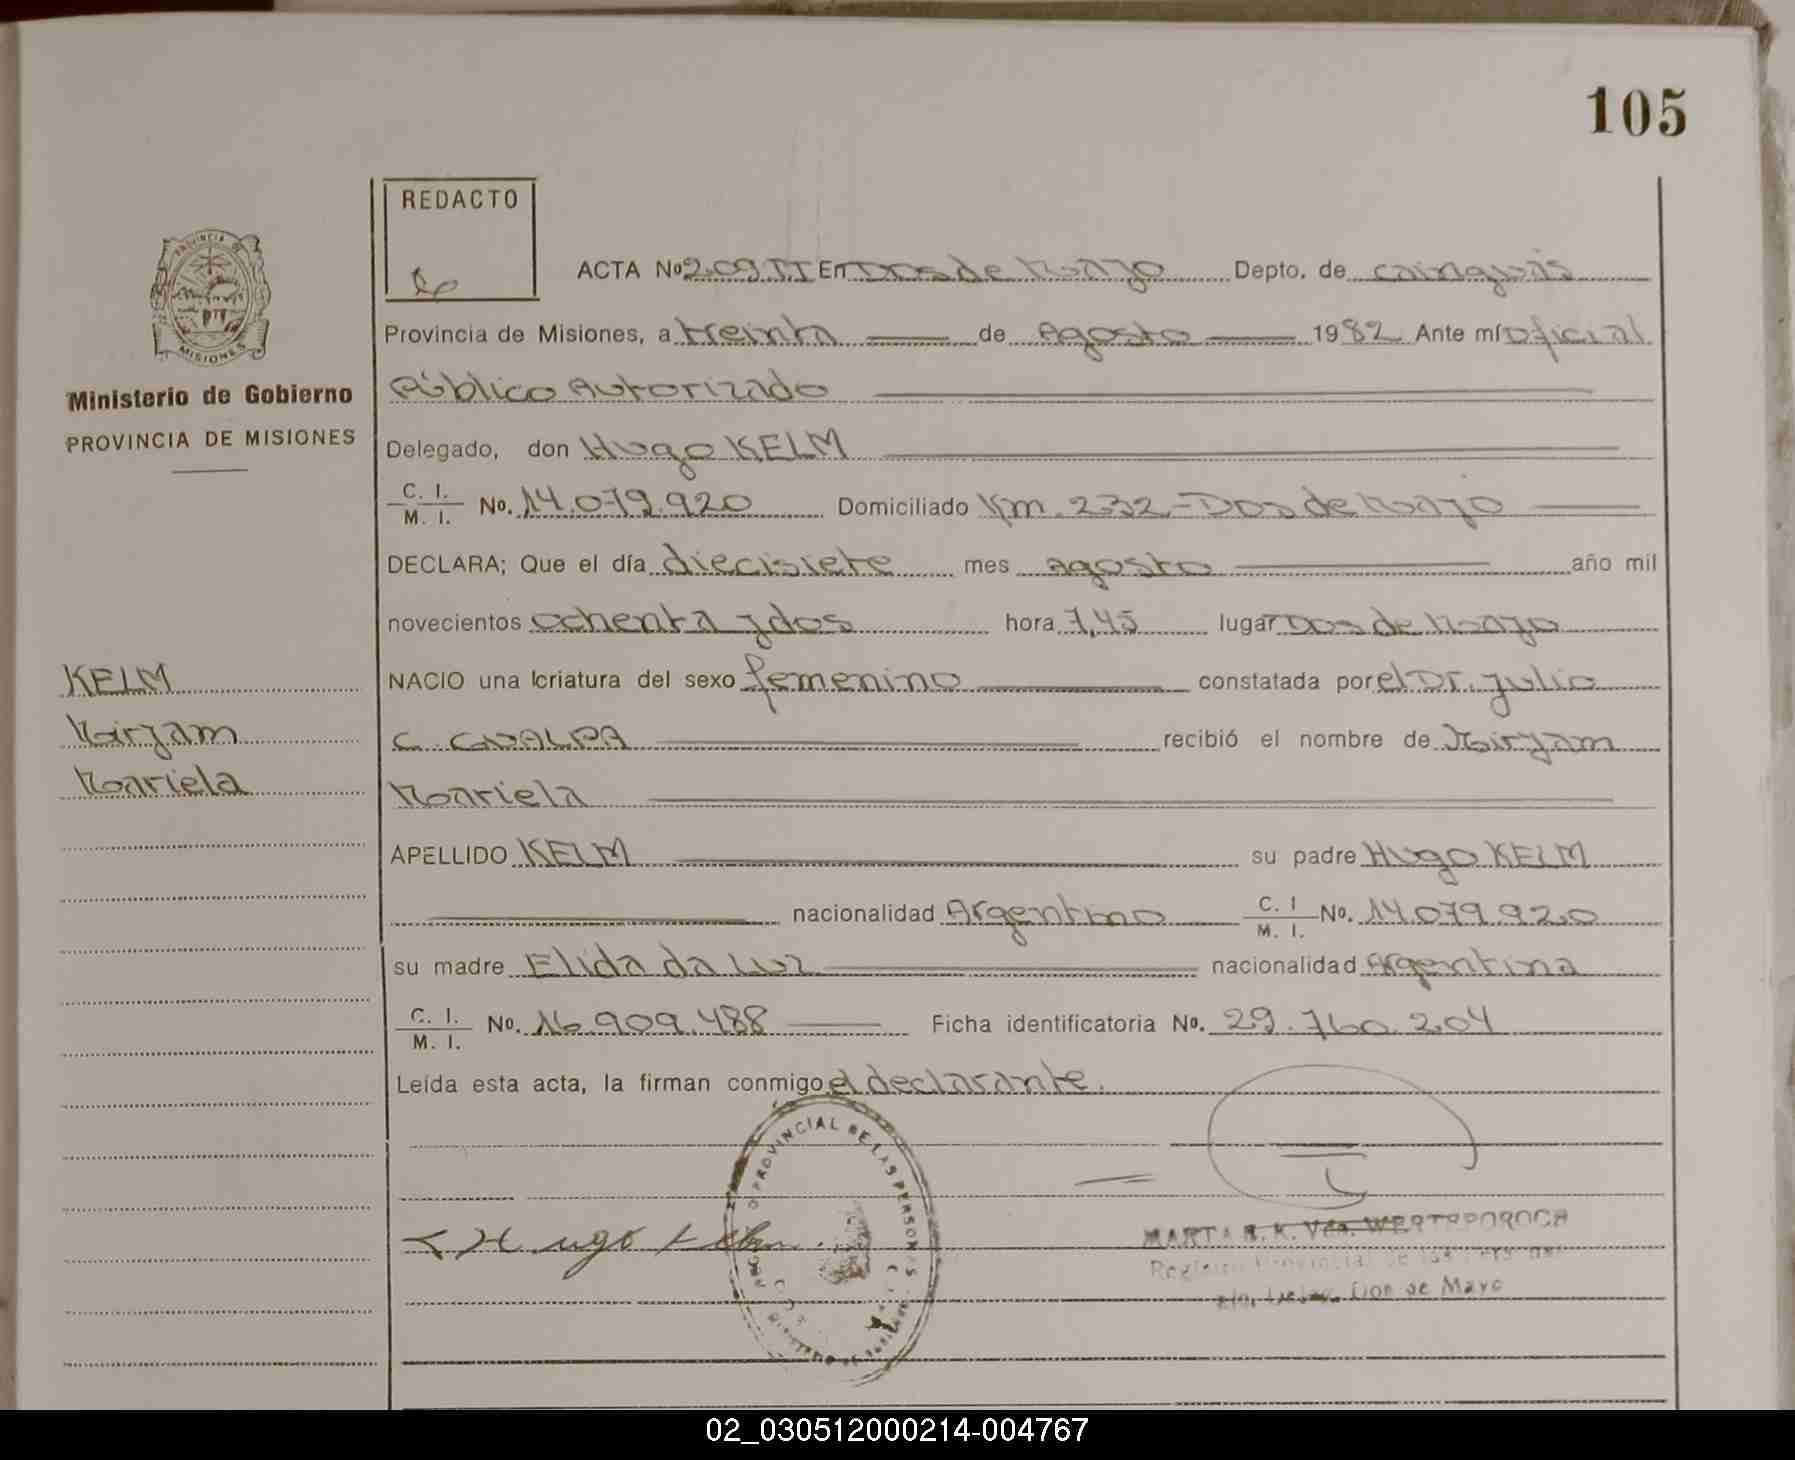 105
REDACTO
ACTA No 209 TI En Dos de Mayo Depto. de Cainguás
Provincia de Misiones, a treinta de Agosto 1982 Ante mí Oficial
Público Autorizado
Delegado, don Hugo KELM
C. I.
M. I. No. 14.079.920 Domiciliado Km. 232 - Dos de Mayo
DECLARA; Que el día diecisiete mes agosto año mil
novecientos ochenta y dos hora 7,45 lugar Dos de Mayo
NACIO una criatura del sexo femenino constatada por el Dr. Julio
C. GUALPA recibió el nombre de Mirjam
Mariela
APELLIDO KELM su padre Hugo KELM
nacionalidad Argentino C. I M. I. No. 14.079.920
su madre Elida da Luz nacionalidad Argentina
C. I.
M. I. No. 16.909.488 Ficha identificatoria No. 29.760.204
Leída esta acta, la firman conmigo el declarante.
PROVINCIA DE
MISIONES
Ministerio de Gobierno
PROVINCIA DE MISIONES
KELM
Mirjam
Mariela
PROVINCIAL DE LAS PERSONAS
Hugo Kelm
MARTA
Dos de Mayo
02_030512000214-004767